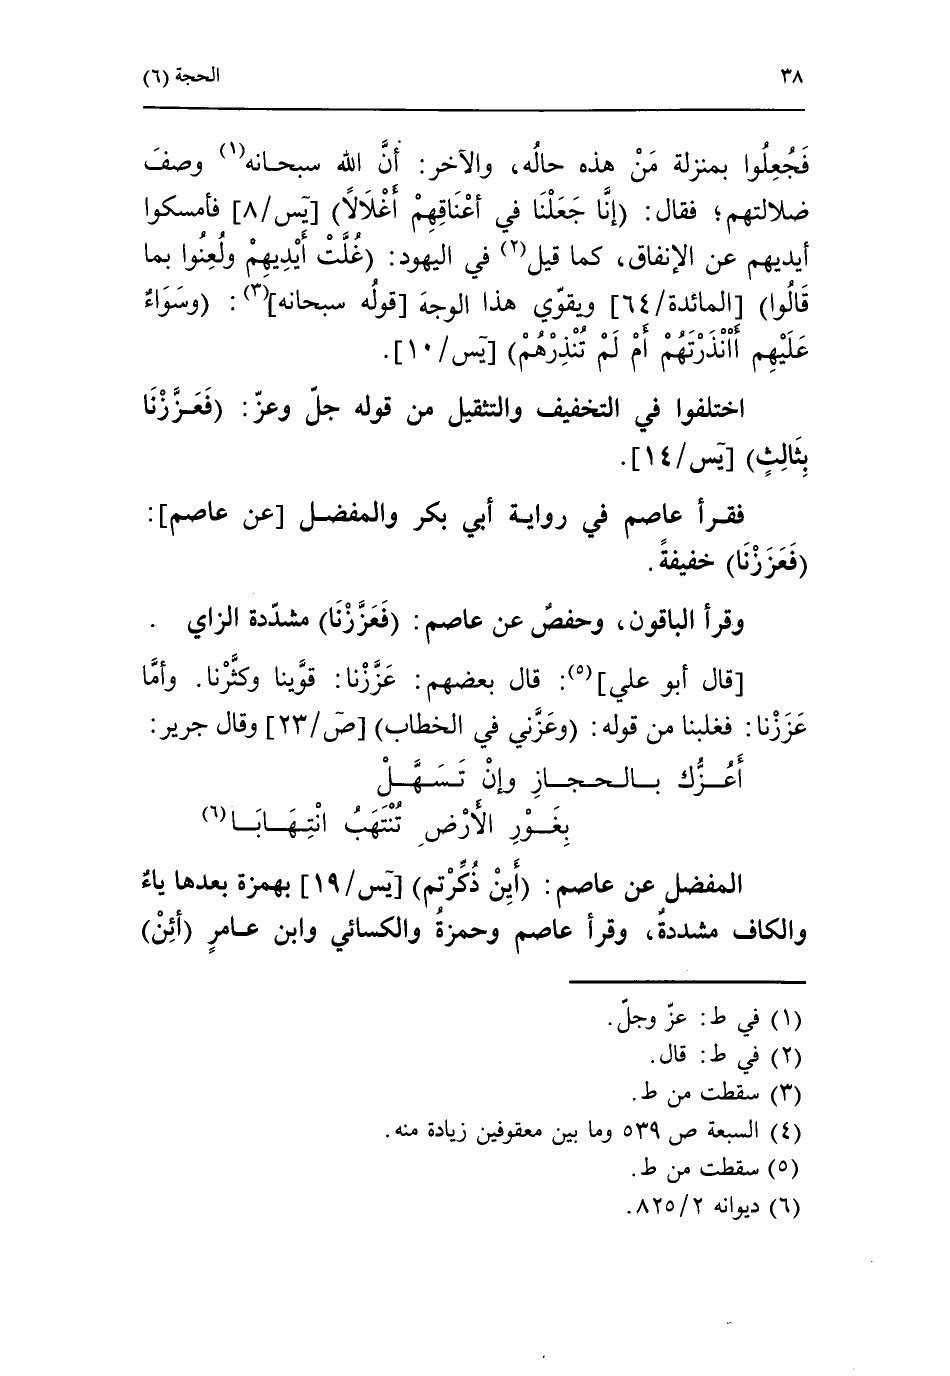 ٣٨ الحجة (٦)
فَجُعِلُوا بمنزلة مَنْ هذه حالُه، والآخر: أنَّ الله سبحـانه(١) وصفَ
ضلالتهم؛ فقال: (إنَّا جَعَلْنَا في أعْنَاقِهِمْ أَغْلَالاً) [يَس/٨] فأمسكوا
أيديهم عن الإنفاق، كما قيل(٢) في اليهود: (غُلَّتْ أَيْدِيهِمْ ولُعِنُوا بما
قَالُوا) [المائدة/٦٤] ويقوّي هذا الوجهَ [قولُه سبحانه](٣): (وسَوَاءٌ
عَلَيْهِم أأَنْذَرْتَهُمْ أَمْ لَمْ تُنْذِرْهُمْ) [يَس/١٠].
اختلفوا في التخفيف والتثقيل من قوله جلّ وعزّ: (فَعَـزَّزْنَا
بِثَالِثٍ) [يَس/١٤].
فقـرأ عاصم في روايـة أبي بكر والمفضـل [عن عاصم]:
(فَعَزَزْنَا) خفيفةً.
وقرأ الباقون، وحفصٌ عن عاصم: (فَعَزَّزْنَا) مشدّدة الزاي .
[قال أبو علي](٥): قال بعضهم: عَزَّزْنا: قوَّينا وكثَّرْنا. وأمَّا
عَزَزْنا: فغلبنا من قوله: (وعَزَّني في الخطاب) [صَ/٢٣] وقال جرير:
أَعُـــزُّك بـالـحـجـازِ وإنْ تَـسَـهَّـلْ
بِغَـوْرِ الأَرْضِ تُنْتَهَبُ انْتِـهَـابَـا(٦)
المفضل عن عاصم: (أَيِنْ ذُكِّرْتم) [يَس/١٩] بهمزة بعدها ياءٌ
والكاف مشددةٌ، وقرأ عاصم وحمزةُ والكسائي وابن عـامرٍ (أئِنْ)
(١) في ط: عزّ وجلّ.
(٢) في ط: قال.
(٣) سقطت من ط.
(٤) السبعة ص ٥٣٩ وما بين معقوفين زيادة منه.
(٥) سقطت من ط.
(٦) ديوانه ٨٢٥/٢.